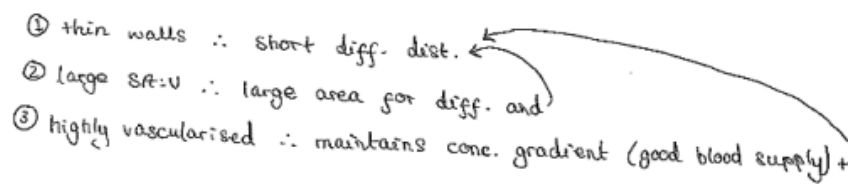 ① thin walls ∴ short diff. dist.
② large SA:V ∴ large area for diff. and
③ highly vascularised ∴ maintains conc. gradient (good blood supply) +